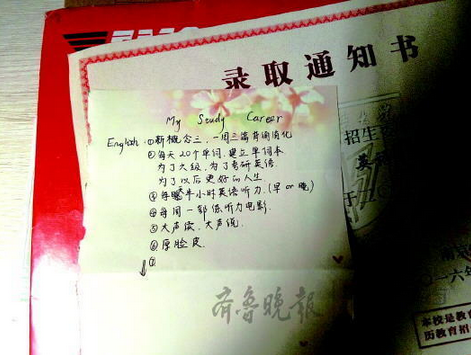 录取通知书
My Study Career
English: ①新概念三,一周三篇背诵消化
②每天20个单词,建立单词本
为了六级,为了考研英语
为了以后更好的人生
③每晚半小时英语听力.(早 or 晚)
④每周一部练听力电影.
⑤大声读、大声说.
⑥厚脸皮.
⑦
招生
齐鲁晚报
一六年
本校是教育
历教育招